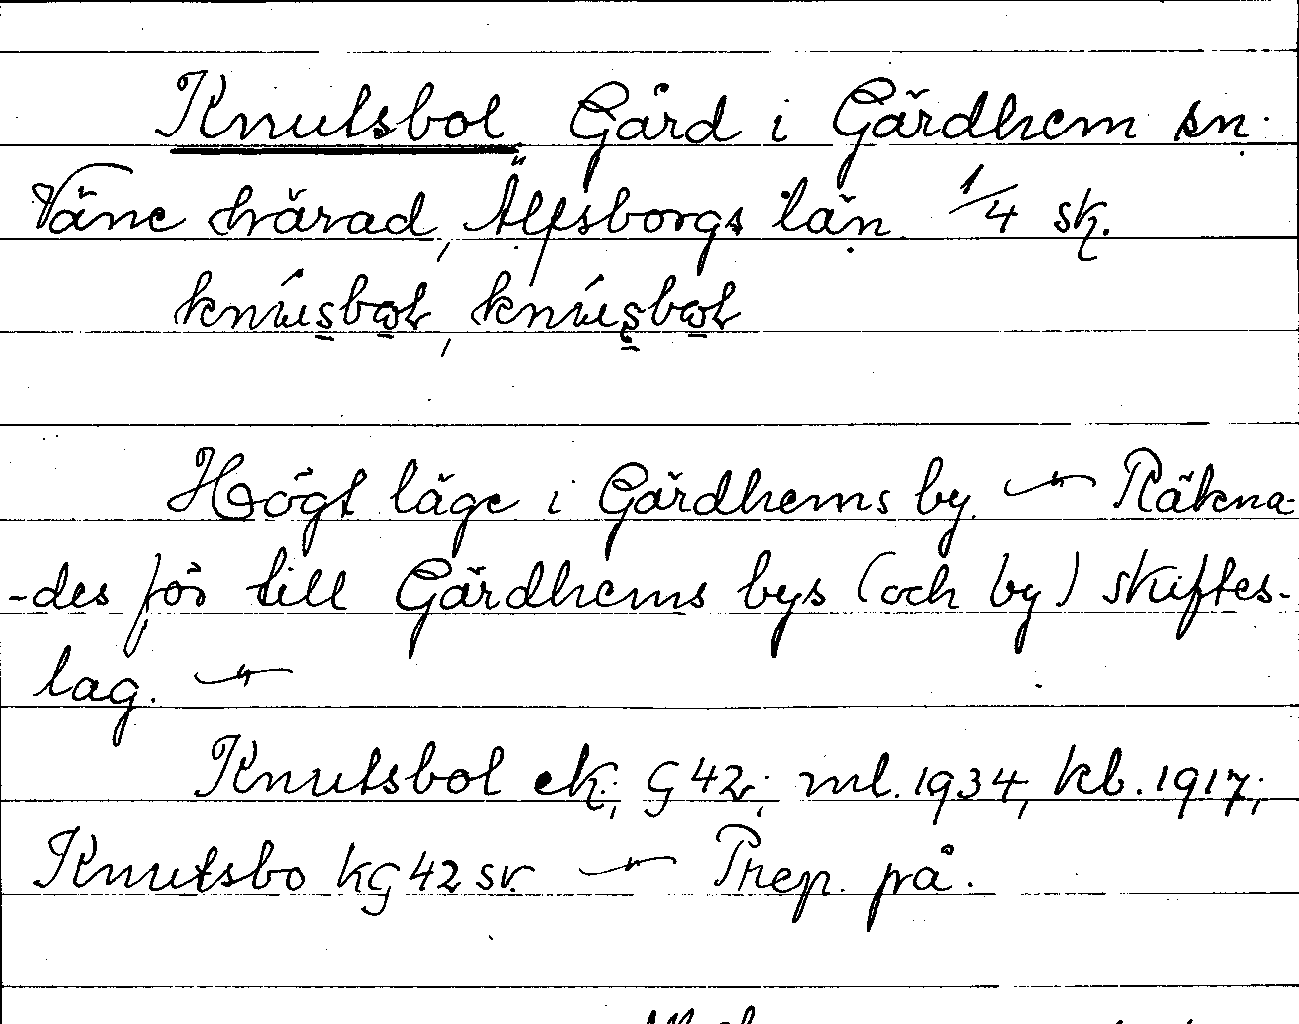 Knutsbol Gård i Gärdhem sn.
Väne härad, Älfsborgs län 1/4 sk.
knúsbɷl, knúsbɷl
Högt läge i Gärdhems by. — Räkna-
-des för till Gärdhems bys (och by) skiftes-
lag. —
Knutsbol ek; G 42; ml. 1934, kb. 1917;
Knutsbo kG 42 sv. — Prep. på.